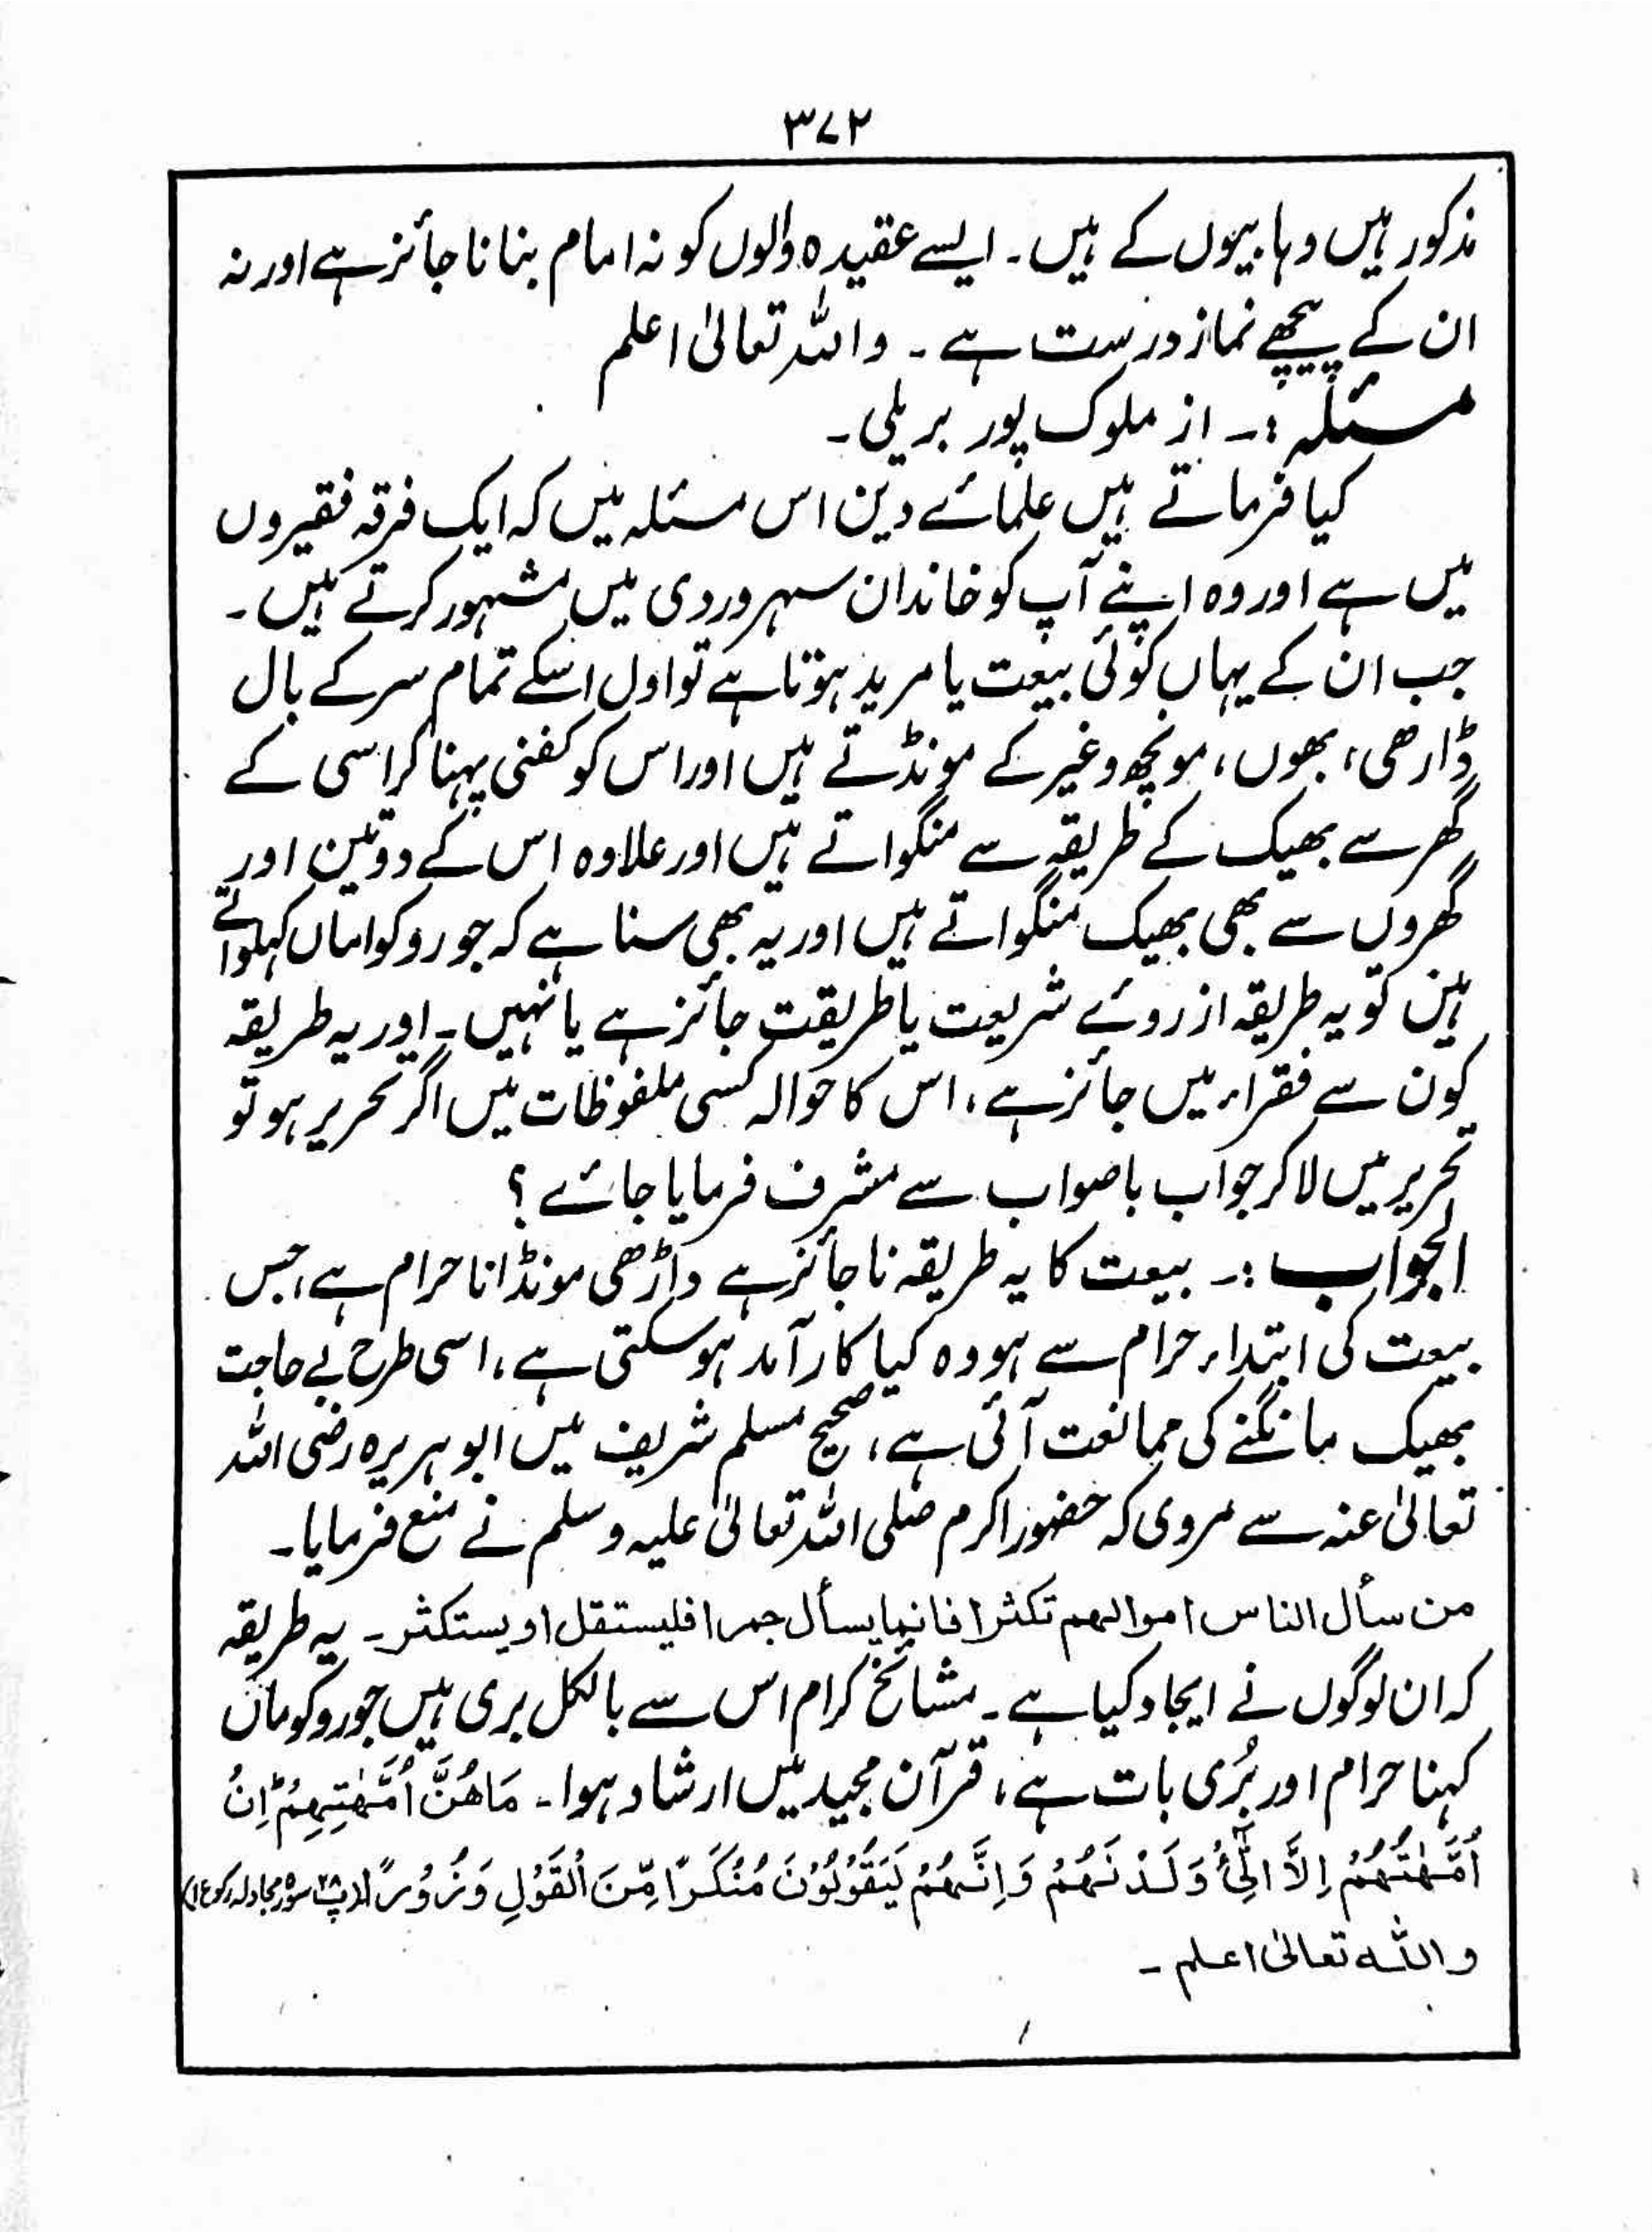 ۳۷۲
مذکور ہیں وہابیوں کے ہیں۔ ایسے عقیدہ والوں کو نہ امام بنانا جائز ہے اور نہ
ان کے پیچھے نماز درست ہے۔ واللہ تعالیٰ اعلم
مسئلہ :۔ از ملوک پور بریلی۔
کیا فرماتے ہیں علمائے دین اس مسئلہ میں کہ ایک فرقہ فقیروں
میں ہے اور وہ اپنے آپ کو خاندان سہروردی میں مشہور کرتے ہیں۔
جب ان کے یہاں کوئی بیعت یا مرید ہوتا ہے تو اول اسکے تمام سر کے بال
ڈارھی، بھوں، مونچھ وغیر کے مونڈتے ہیں اور اس کو کفنی پہنا کر اسی کے
گھر سے بھیک کے طریقہ سے منگواتے ہیں اور علاوہ اس کے دو تین اور
گھروں سے بھی بھیک منگواتے ہیں اور یہ بھی سنا ہے کہ جورو کو اماں کہلواتے
ہیں تو یہ طریقہ از روئے شریعت یا طریقت جائز ہے یا نہیں۔ اور یہ طریقہ
کون سے فقراء میں جائز ہے، اس کا حوالہ کسی ملفوظات میں اگر تحریر ہو تو
تحریر میں لا کر جواب باصواب سے مشرف فرمایا جائے؟
الجواب :۔ بیعت کا یہ طریقہ ناجائز ہے داڑھی مونڈانا حرام ہے، جس
بیعت کی ابتداء حرام سے ہو وہ کیا کارآمد ہوسکتی ہے، اسی طرح بے حاجت
بھیک مانگنے کی ممانعت آئی ہے، صحیح مسلم شریف میں ابوہریرہ رضی اللہ
تعالیٰ عنہ سے مروی کہ حضور اکرم صلی اللہ تعالیٰ علیہ وسلم نے منع فرمایا۔
من سأل الناس اموالہم تکثرا فانما یسأل جمرا فلیستقل او یستکثر۔ یہ طریقہ
کہ ان لوگوں نے ایجاد کیا ہے۔ مشائخ کرام اس سے بالکل بری ہیں جورو کو ماں
کہنا حرام اور بُری بات ہے، قرآن مجید میں ارشاد ہوا۔ مَاهُنَّ اُمَّهٰتِهِمْ ؕ اِنْ
اُمَّهٰتُهُمْ اِلَّا الّٰٓئِیْ وَلَدْنَهُمْ وَاِنَّهُمْ لَیَقُوْلُوْنَ مُنْكَرًا مِّنَ الْقَوْلِ وَزُوْرًا (پ ۲۸ سورہ مجادلہ رکوع ۱)
واللہ تعالیٰ اعلم۔